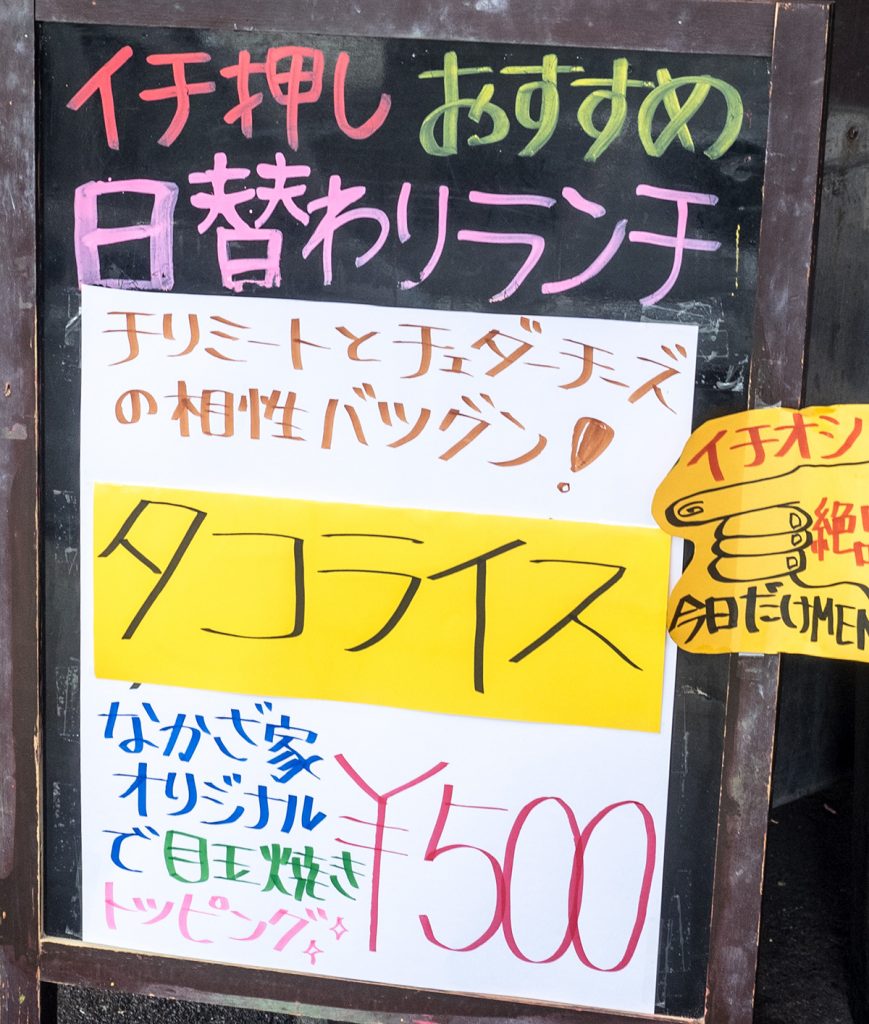 イチ押し おすすめ
日替わりランチ
チリミートとチェダーチーズ
の相性バツグン!
タコライス
なかざ家
オリジナル
で目玉焼き
トッピング
¥500
イチオシ
絶
今日だけMEN